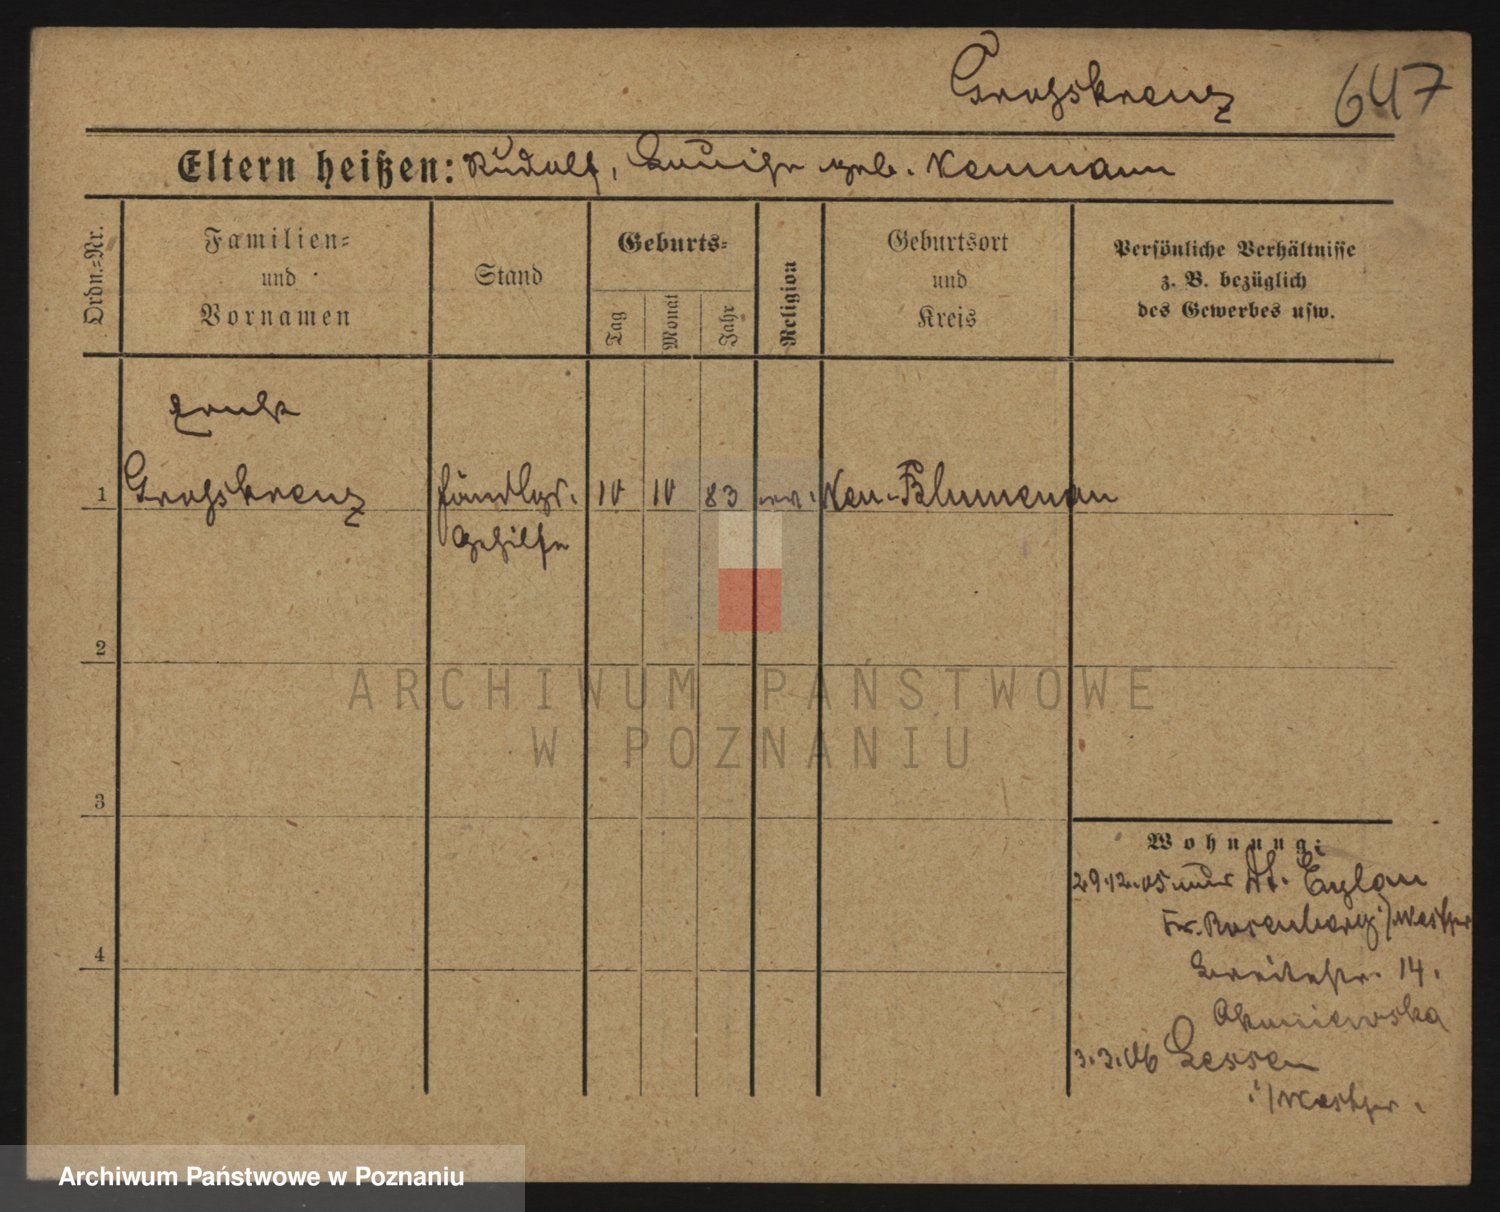 Groszkrenz 647
Eltern heißen: Rudolf, Louise geb. Neumann
Ordn.-Nr.
Familien-
und
Vornamen
Stand
Geburts-
Tag
Monat
Jahr
Religion
Geburtsort
und
Kreis
Persönliche Verhältnisse
z. B. bezüglich
des Gewerbes usw.
Ernst
1 Groszkrenz Handlgs. 10 10 83 ev. Neu-Blumenau
Gehilfe
2
3
4
Wohnung:
29.12.05 Dt. Eylau
Kr. Rosenberg i/Westpr
Breitestr. 14.
3.3.06 Lessen
i/Westpr.
ARCHIWUM PAŃSTWOWE
W POZNANIU
Archiwum Państwowe w Poznaniu